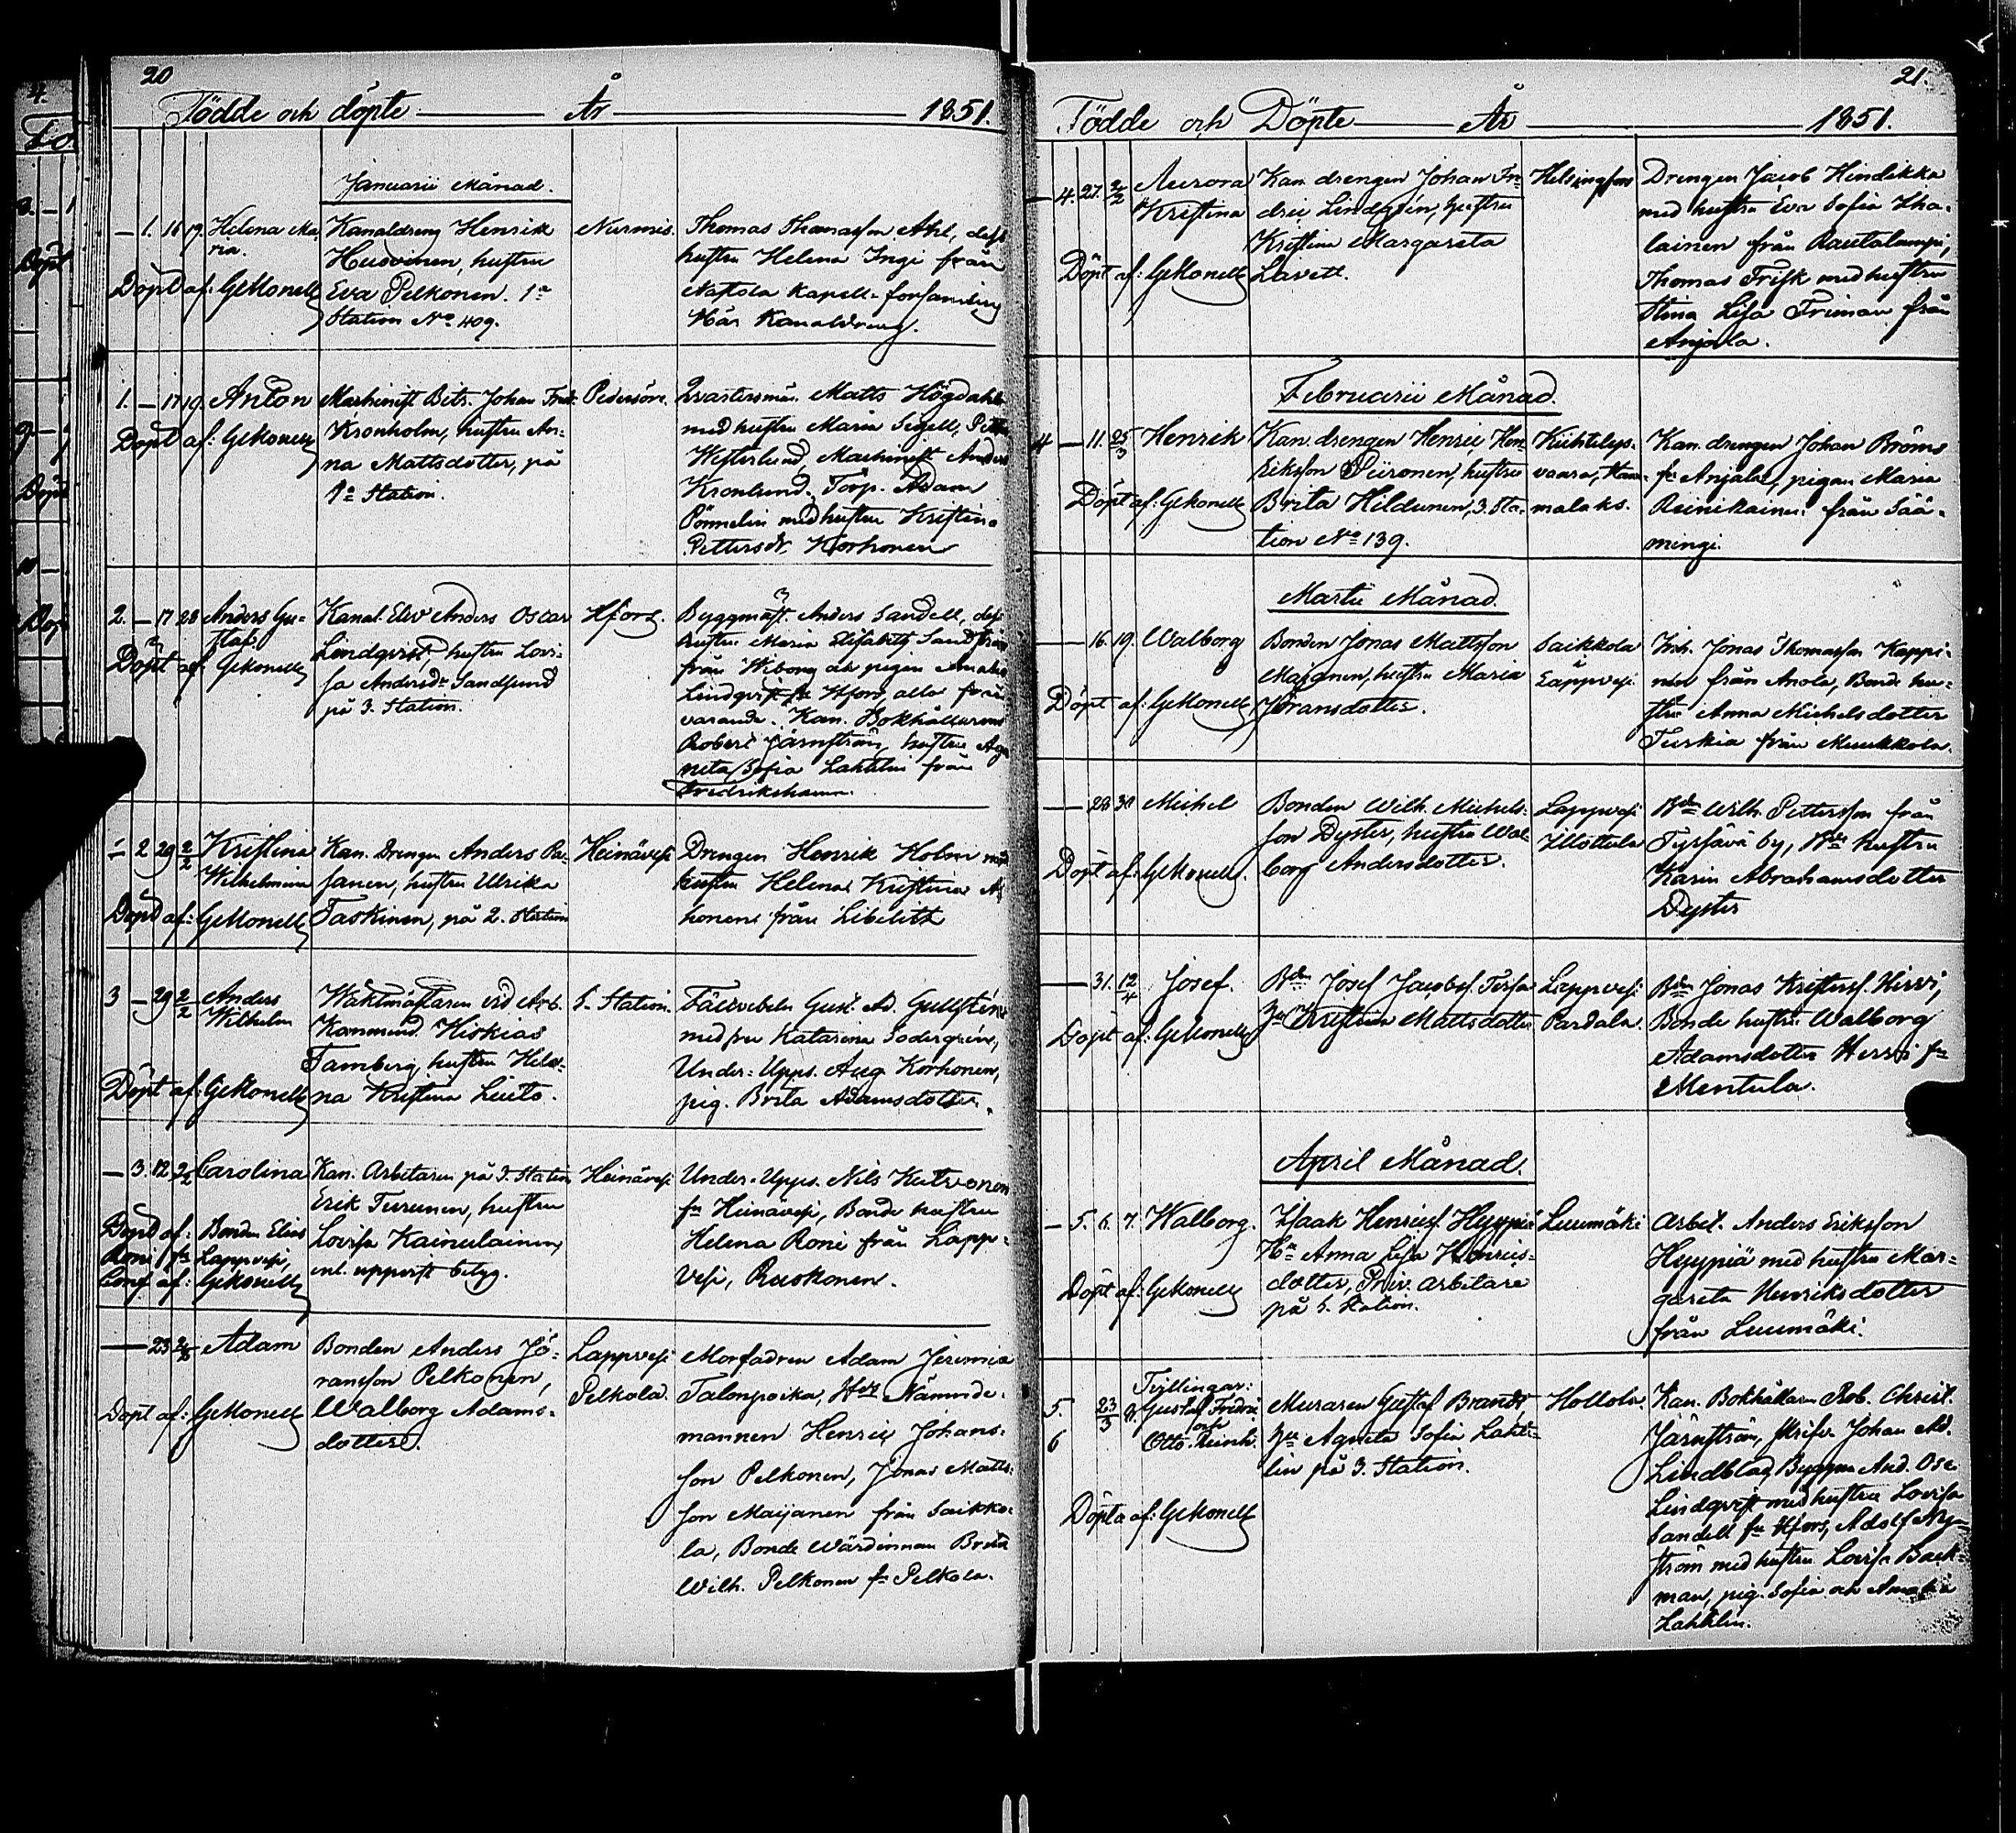 20
Födde och döpte — År — 1851.
Januarii Månad.
— 1. 16 19. Helena Ma-
ria.
Döpt af: GeMonell
Kanaldreng Henrik
Huovinen, hustru
Eva Pelkonen. 1a
Station No 409.
Nurmis.
Thomas Thomasson Ahl, dess
hustru Helena Inge från
Kapell-forsamling
Här Kanaldreng.
1. — 17 19. Anton
Döpt af: GeMonell
Machinist Bitr. Johan Fredr.
Kronholm, hustru An-
na Mattsdotter, på
1a Station.
Pedersöre.
Qvartersmän. Matts Högdahl
med hustru Maria Segell, Petter
Westerlund, Machinist Anders
Kronlund. Torp. Adam
med hustru Kristina
Pettersdr Korhonen
2. — 17 28 Anders Gu-
staf
Döpt af: GeMonell
Kanal Elev Anders Oscar
Lindqvist, hustru Lovi-
sa Andersdr Sandlund
på 3. Station.
Hfors.
Byggmäst. Anders Sandell, dess
hustru Maria Elisabeth Sandström
från Wiborg och pigan Amalia
Lindqvist fr Hfors, alla från-
varande. Kan. Bokhållarens
Robert Järnström, hustru Ag-
neta Sofia Lahtlin från
Fredrikshamn.
1 2 29 2/2 Kristina
Wilhelmina
Döpt af: GeMonell
Kan. Drengen Anders Pa-
sanen, hustru Ulrika
Taskinen, på 2. Station
Heinävesi
Drengen Henrik Holm med
hustru Helena Kristina A-
honen från Libelits
3 — 29 2/2 Anders
Wilhelm
Döpt af: GeMonell
Waktmästaren vid Arb.
Kommend. Hiskias
Tamberg, hustru Hele-
na Kristina Liuto.
5. Station.
Fältvebeln Gust. Ad. Gullstén
med fru Katarina Södergrén,
Under-Upps. Aug Korhonen,
pig. Brita Adamsdotter.
— 3. 12 2/2 Carolina
Döpt af: Bonden Elias
Roni fr Lappvesi,
Conf af: GeMonell
Kan. Arbitaren på 3. Station
Erik Turunen, hustru
Lovisa Kainulainen,
enl. uppvist betyg.
Heinävesi
Under-Upps. Nils Kutvonen
fr Heinävesi, Bonde hustru
Helena Roni från Lapp-
vesi, Ruokonen.
— 23 Adam
Döpt af: GeMonell
Bonden Anders Jö-
ransson Pelkonen,
Walborg Adams-
dotter.
Lappvesi
Pelkola.
Morfadren Adam Jeremias
Talonpoika, Nämnde-
mannen Henric Johans-
son Pelkonen, Jonas Matts-
son Maijanen från Saikko-
la, Bonde Wärdinnan Brita
Wilh. Pelkonen fr Pelkola.
21.
Födde och Döpte — År — 1851.
— 4. 27. 2/2 Aurora
Kristina
Döpt af: GeMonell
Kan. drengen Johan Fre-
dric Lindgrén, hustru
Kristina Margareta
Lavett.
Helsingfors
Drengen Jacob Hindikka
med hustru Eva Sofia Lha-
lainen från Rautalampi,
Thomas Frisk med hustru
Stina Lisa Friman från
Anjala.
Februarii Månad.
4 — 11. 25/3 Henrik
Döpt af: GeMonell
Kan. drengen Henric Hen-
riksson Piironen, hustru
Brita Hildunen, 3. Sta-
tion No 139.
Kiihtelys-
vaara, Ham-
malaks.
Kan. drengen Johan Bröms
fr Anjala, pigan Maria
Reinikainen från Sää-
mingi.
Martii Månad.
— 16. 19. Walborg
Döpt af: GeMonell
Bonden Jonas Mattsson
Maijanen, hustru Maria
Jöransdotter.
Saikkola
Lappvesi.
Inh. Jonas Thomasson Kappi-
nen från Anola, Bonde hu-
stru Anna Michelsdotter
Turkia från Muukkola.
— 28 30 Michel
Döpt af: GeMonell.
Bonden Wilh. Michels-
son Dyster, hustru Wal-
borg Andersdotter.
Lappvesi
Illottula
Bdn Wilh. Pettersson från
by, Bde hustru
Karin Abrahamsdotter
Dyster
— 31. 12/4 Josef.
Döpt af: GeMonell
Bdn Josef Jacobs.
Hu Kristina Mattsdotter
Lappvesi
Pardala.
Bdn Jonas Kristers. Hirvi,
Bonde hustru Walborg
Adamsdotter Hirvi fr
Mentula.
April Månad.
— 5. 6. 7. Walborg.
Döpt af: GeMonell
Isaak Henrics. Hyypiä
Hu Anna Lisa Henrics-
dotter, Priv. arbitare
på 5. Station.
Luumäki
Arbet. Anders Eriksson
Hyypiä med hustru Mar-
gareta Henriksdotter
från Luumäki.
5.
6
23/3 8. Tvillingar:
Gustaf Fredric
och
Otto Reinh.
Döpta af: GeMonell
Muraren Gustaf Brandt,
Hu Agneta Sofia Laht-
lin på 3. Station.
Hollola
Kan. Bokhållaren Rob. Christ.
Järnström, skrifv. Johan Ad.
Lindblad, Byggm And. Osc
Lindqvist med hustru Lovisa
Sandell fr Hfors, Adolf Ny-
ström med hustru Lovisa Back-
man, pig. Sofia och Amalia
Lahtlin.